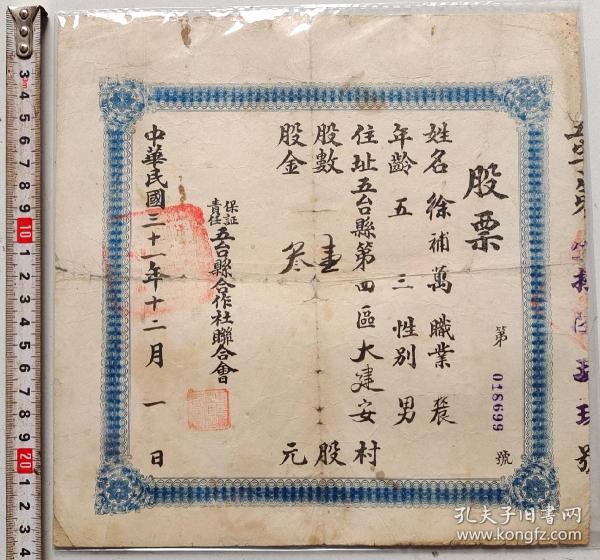 股票
第 018699 號
姓名 徐補萬 職業 農
年齡 五三 性別 男
住址 五台縣第四區大建安村
股數 壹 股
股金 叁 元
保証責任 五台縣合作社聯合會
中華民國三十一年十二月一日
3m
3
4
5
6
7
8
9
10
1
2
3
4
5
6
7
8
9
20
1
2
3
4
孔夫子旧书网
www.kongfz.com